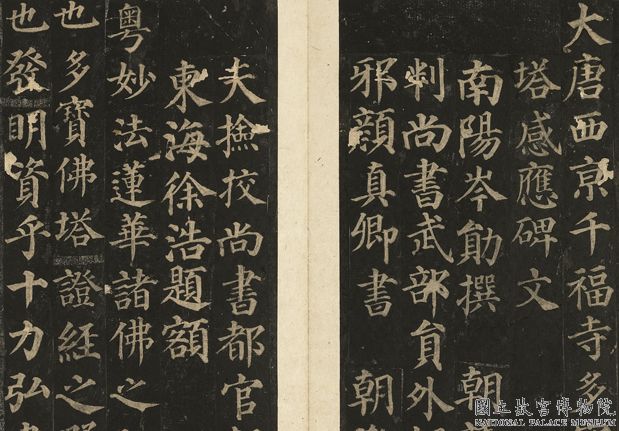 大唐西京千福寺多
塔感應碑文
南陽岑勛撰　朝
判尚書武部員外
邪顏真卿書　朝
夫撿挍尚書都官
東海徐浩題額
粵妙法蓮華諸佛之
也多寶佛塔證經之
也發明資乎十力弘
國立故宮博物院
NATIONAL PALACE MUSEUM